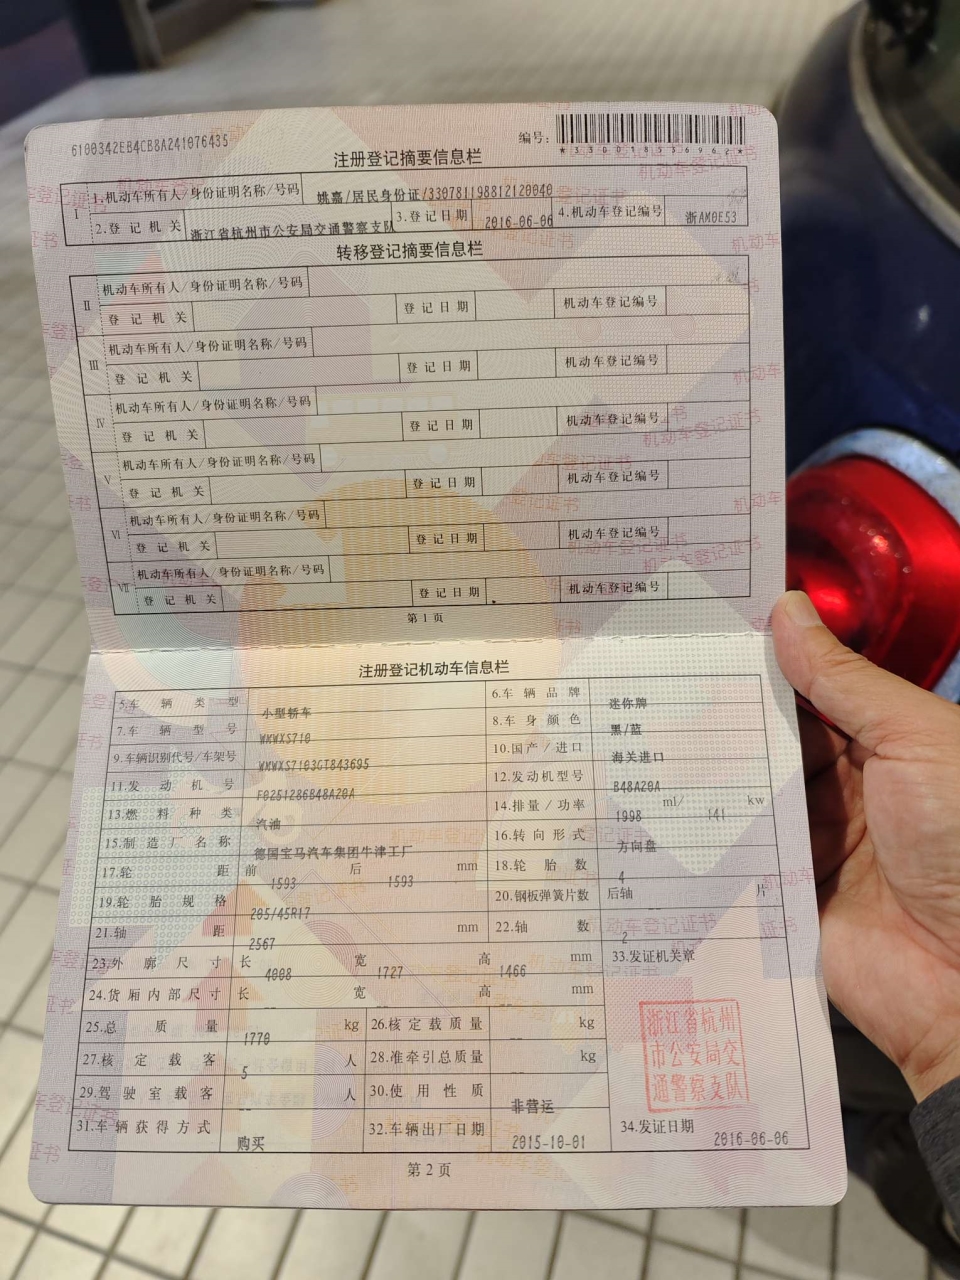 6100342EB4CB8A241076435
编号:
*330018536962*
注册登记摘要信息栏
I
1.机动车所有人/身份证明名称/号码 姚嘉/居民身份证/330781198812120040
2.登记机关 浙江省杭州市公安局交通警察支队 3.登记日期 2016-06-06 4.机动车登记编号 浙AM0E53
转移登记摘要信息栏
II
机动车所有人/身份证明名称/号码
登记机关 登记日期 机动车登记编号
III
机动车所有人/身份证明名称/号码
登记机关 登记日期 机动车登记编号
IV
机动车所有人/身份证明名称/号码
登记机关 登记日期 机动车登记编号
V
机动车所有人/身份证明名称/号码
登记机关 登记日期 机动车登记编号
VI
机动车所有人/身份证明名称/号码
登记机关 登记日期 机动车登记编号
VII
机动车所有人/身份证明名称/号码
登记机关 登记日期 机动车登记编号
第1页
注册登记机动车信息栏
5.车辆类型 小型轿车 6.车辆品牌 迷你牌
7.车辆型号 WMWXS710 8.车身颜色 黑/蓝
9.车辆识别代号/车架号 WMWXS7103GT843695 10.国产/进口 海关进口
11.发动机号 F0251286B48A20A 12.发动机型号 B48A20A
13.燃料种类 汽油 14.排量/功率 1998 ml/ 141 kw
15.制造厂名称 德国宝马汽车集团牛津工厂 16.转向形式 方向盘
17.轮距 前 1593 后 1593 mm 18.轮胎数 4
19.轮胎规格 205/45R17 20.钢板弹簧片数 后轴 片
21.轴距 2567 mm 22.轴数 2
23.外廓尺寸 长 4008 宽 1727 高 1466 mm 33.发证机关章
24.货厢内部尺寸 长 -- 宽 -- 高 -- mm
25.总质量 1770 kg 26.核定载质量 -- kg
27.核定载客 5 人 28.准牵引总质量 -- kg
29.驾驶室载客 -- 人 30.使用性质 非营运
31.车辆获得方式 购买 32.车辆出厂日期 2015-10-01 34.发证日期 2016-06-06
浙江省杭州
市公安局交
通警察支队
第2页